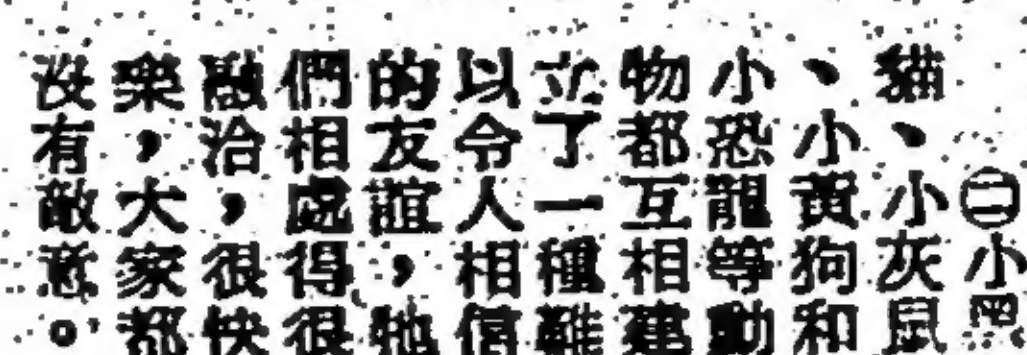 ㊁小黑
貓、小灰鼠
、小黃狗和
小恐龍等動
物都互相建
立了一種難
以令人相信
的友誼，牠
們相處得很
融洽，很快
樂，大家都
沒有敵意。